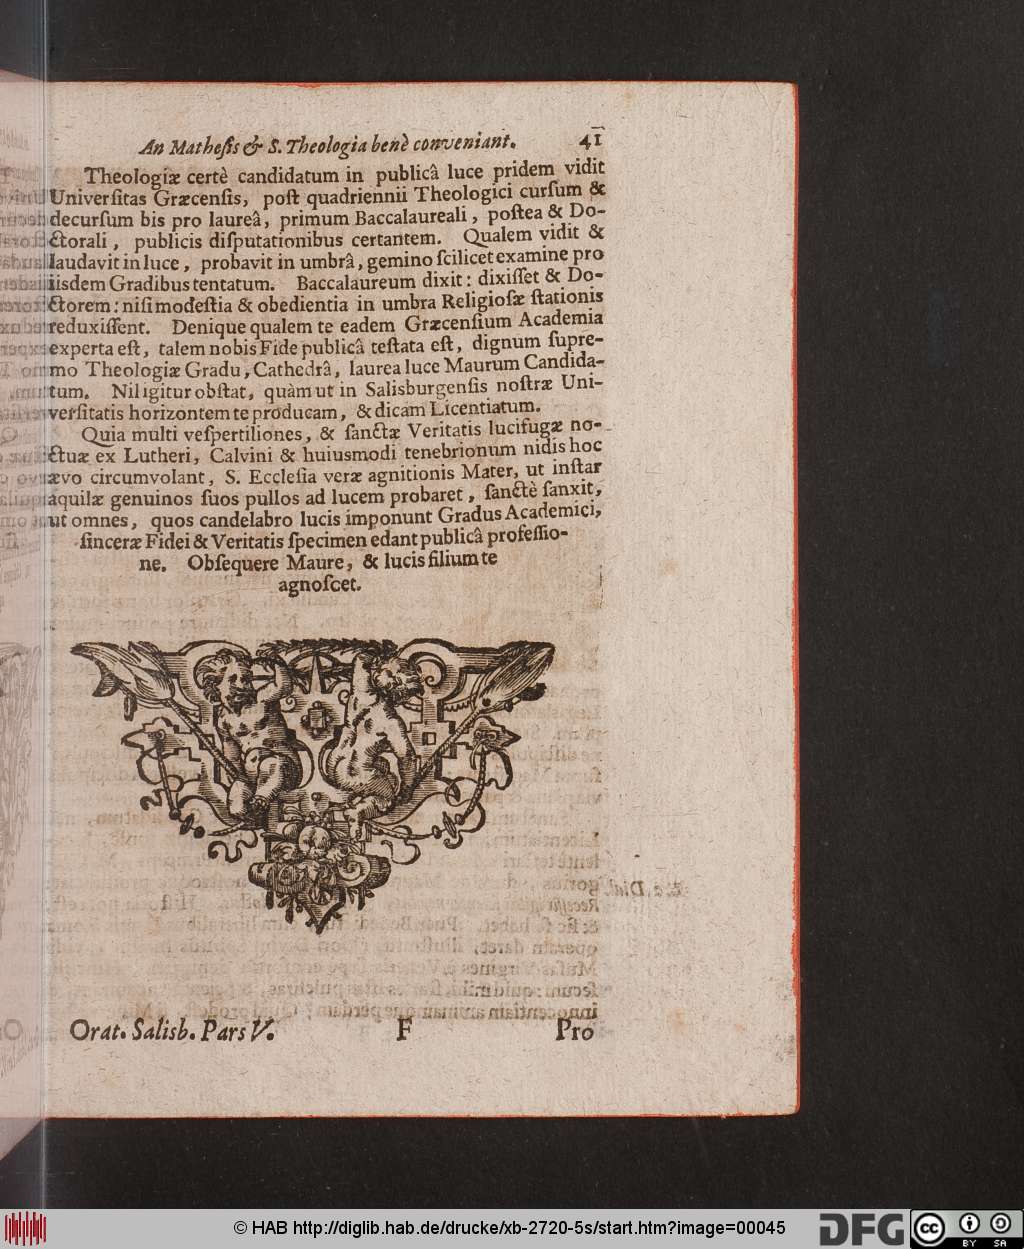 An Mathesis & S. Theologia benè conveniant. 41
Theologiæ certè candidatum in publicâ luce pridem vidit
Universitas Græcensis, post quadriennii Theologici cursum &
decursum bis pro laureâ, primum Baccalaureali, postea & Do-
ctorali, publicis disputationibus certantem. Qualem vidit &
laudavit in luce, probavit in umbrâ, gemino scilicet examine pro
iisdem Gradibus tentatum. Baccalaureum dixit: dixisset & Do-
ctorem: nisi modestia & obedientia in umbra Religiosæ stationis
reduxissent. Denique qualem te eadem Græcensium Academia
experta est, talem nobis Fide publicâ testata est, dignum supre-
mo Theologiæ Gradu, Cathedrâ, laurea luce Maurum Candida-
tum. Nil igitur obstat, quàm ut in Salisburgensis nostræ Uni-
versitatis horizontem te producam, & dicam Licentiatum.
Quia multi vespertiliones, & sanctæ Veritatis lucifugæ no-
ctuæ ex Lutheri, Calvini & huiusmodi tenebrionum nidis hoc
ævo circumvolant, S. Ecclesia veræ agnitionis Mater, ut instar
aquilæ genuinos suos pullos ad lucem probaret, sanctè sanxit,
ut omnes, quos candelabro lucis imponunt Gradus Academici,
sinceræ Fidei & Veritatis specimen edant publicâ professio-
ne. Obsequere Maure, & lucis filium te
agnoscet.
Orat. Salisb. Pars V. F Pro
© HAB http://diglib.hab.de/drucke/xb-2720-5s/start.htm?image=00045
DFG
cc BY SA